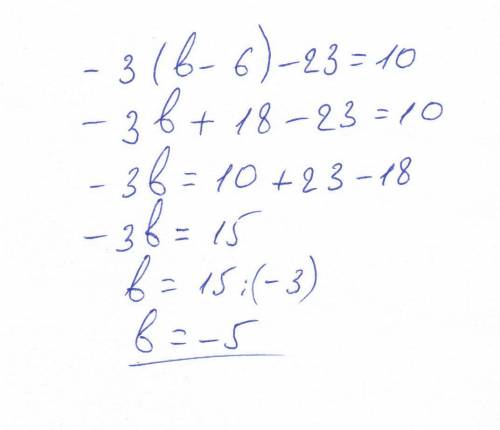 - 3 (b - 6) - 23 = 10
- 3b + 18 - 23 = 10
- 3b = 10 + 23 - 18
- 3b = 15
b = 15 : (-3)
b = -5